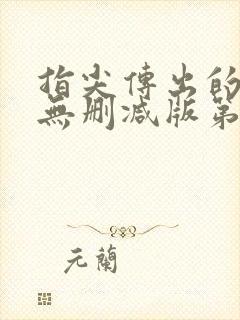 指尖傳出的
無刪減版第
元蘭